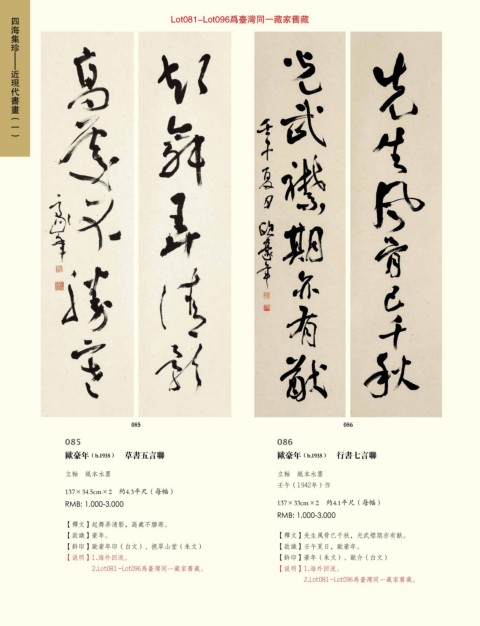 Lot081-Lot096爲臺灣同一藏家舊藏
四海集珍——近現代書畫（一）
起舞弄清影
高處不勝寒
豪年
先生風骨已千秋
光武襟期亦有猷
壬午夏日歐豪年
085
086
085
歐豪年（b.1935） 草書五言聯
立軸 紙本水墨
137×34.5cm×2 約4.3平尺（每幅）
RMB: 1,000-3,000
【釋文】起舞弄清影，高處不勝寒。
【款識】豪年。
【鈐印】歐豪年印（白文）、挹翠山堂（朱文）
【說明】1.海外回流。
2.Lot081-Lot096爲臺灣同一藏家舊藏。
086
歐豪年（b.1935） 行書七言聯
立軸 紙本水墨
壬午（1942年）作
137×33cm×2 約4.1平尺（每幅）
RMB: 1,000-3,000
【釋文】先生風骨已千秋，光武襟期亦有猷。
【款識】壬午夏日，歐豪年。
【鈐印】豪年（朱文）、歐介（白文）
【說明】1.海外回流。
2.Lot081-Lot096爲臺灣同一藏家舊藏。